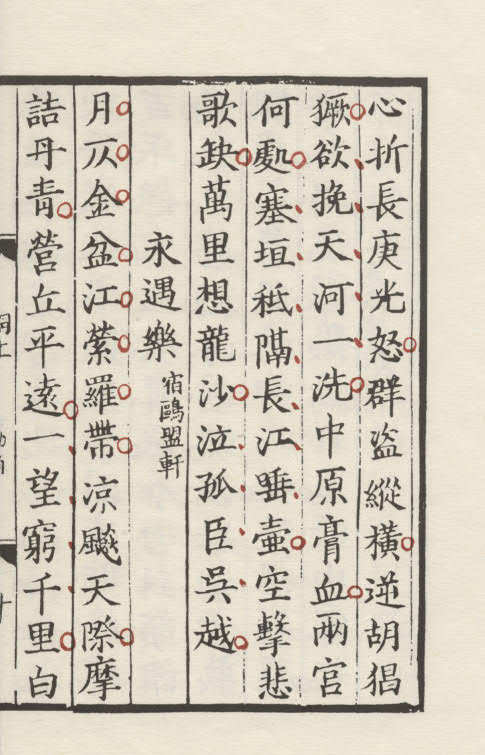 心折長庚光怒群盗縱橫逆胡猖
獗欲挽天河一洗中原膏血兩宫
何處塞垣秪隔長江唾壺空擊悲
歌缺萬里想龍沙泣孤臣吳越
永遇樂 宿鷗盟軒
月仄金盆江縈羅帶凉飈天際摩
詰丹青營丘平遠一望窮千里白